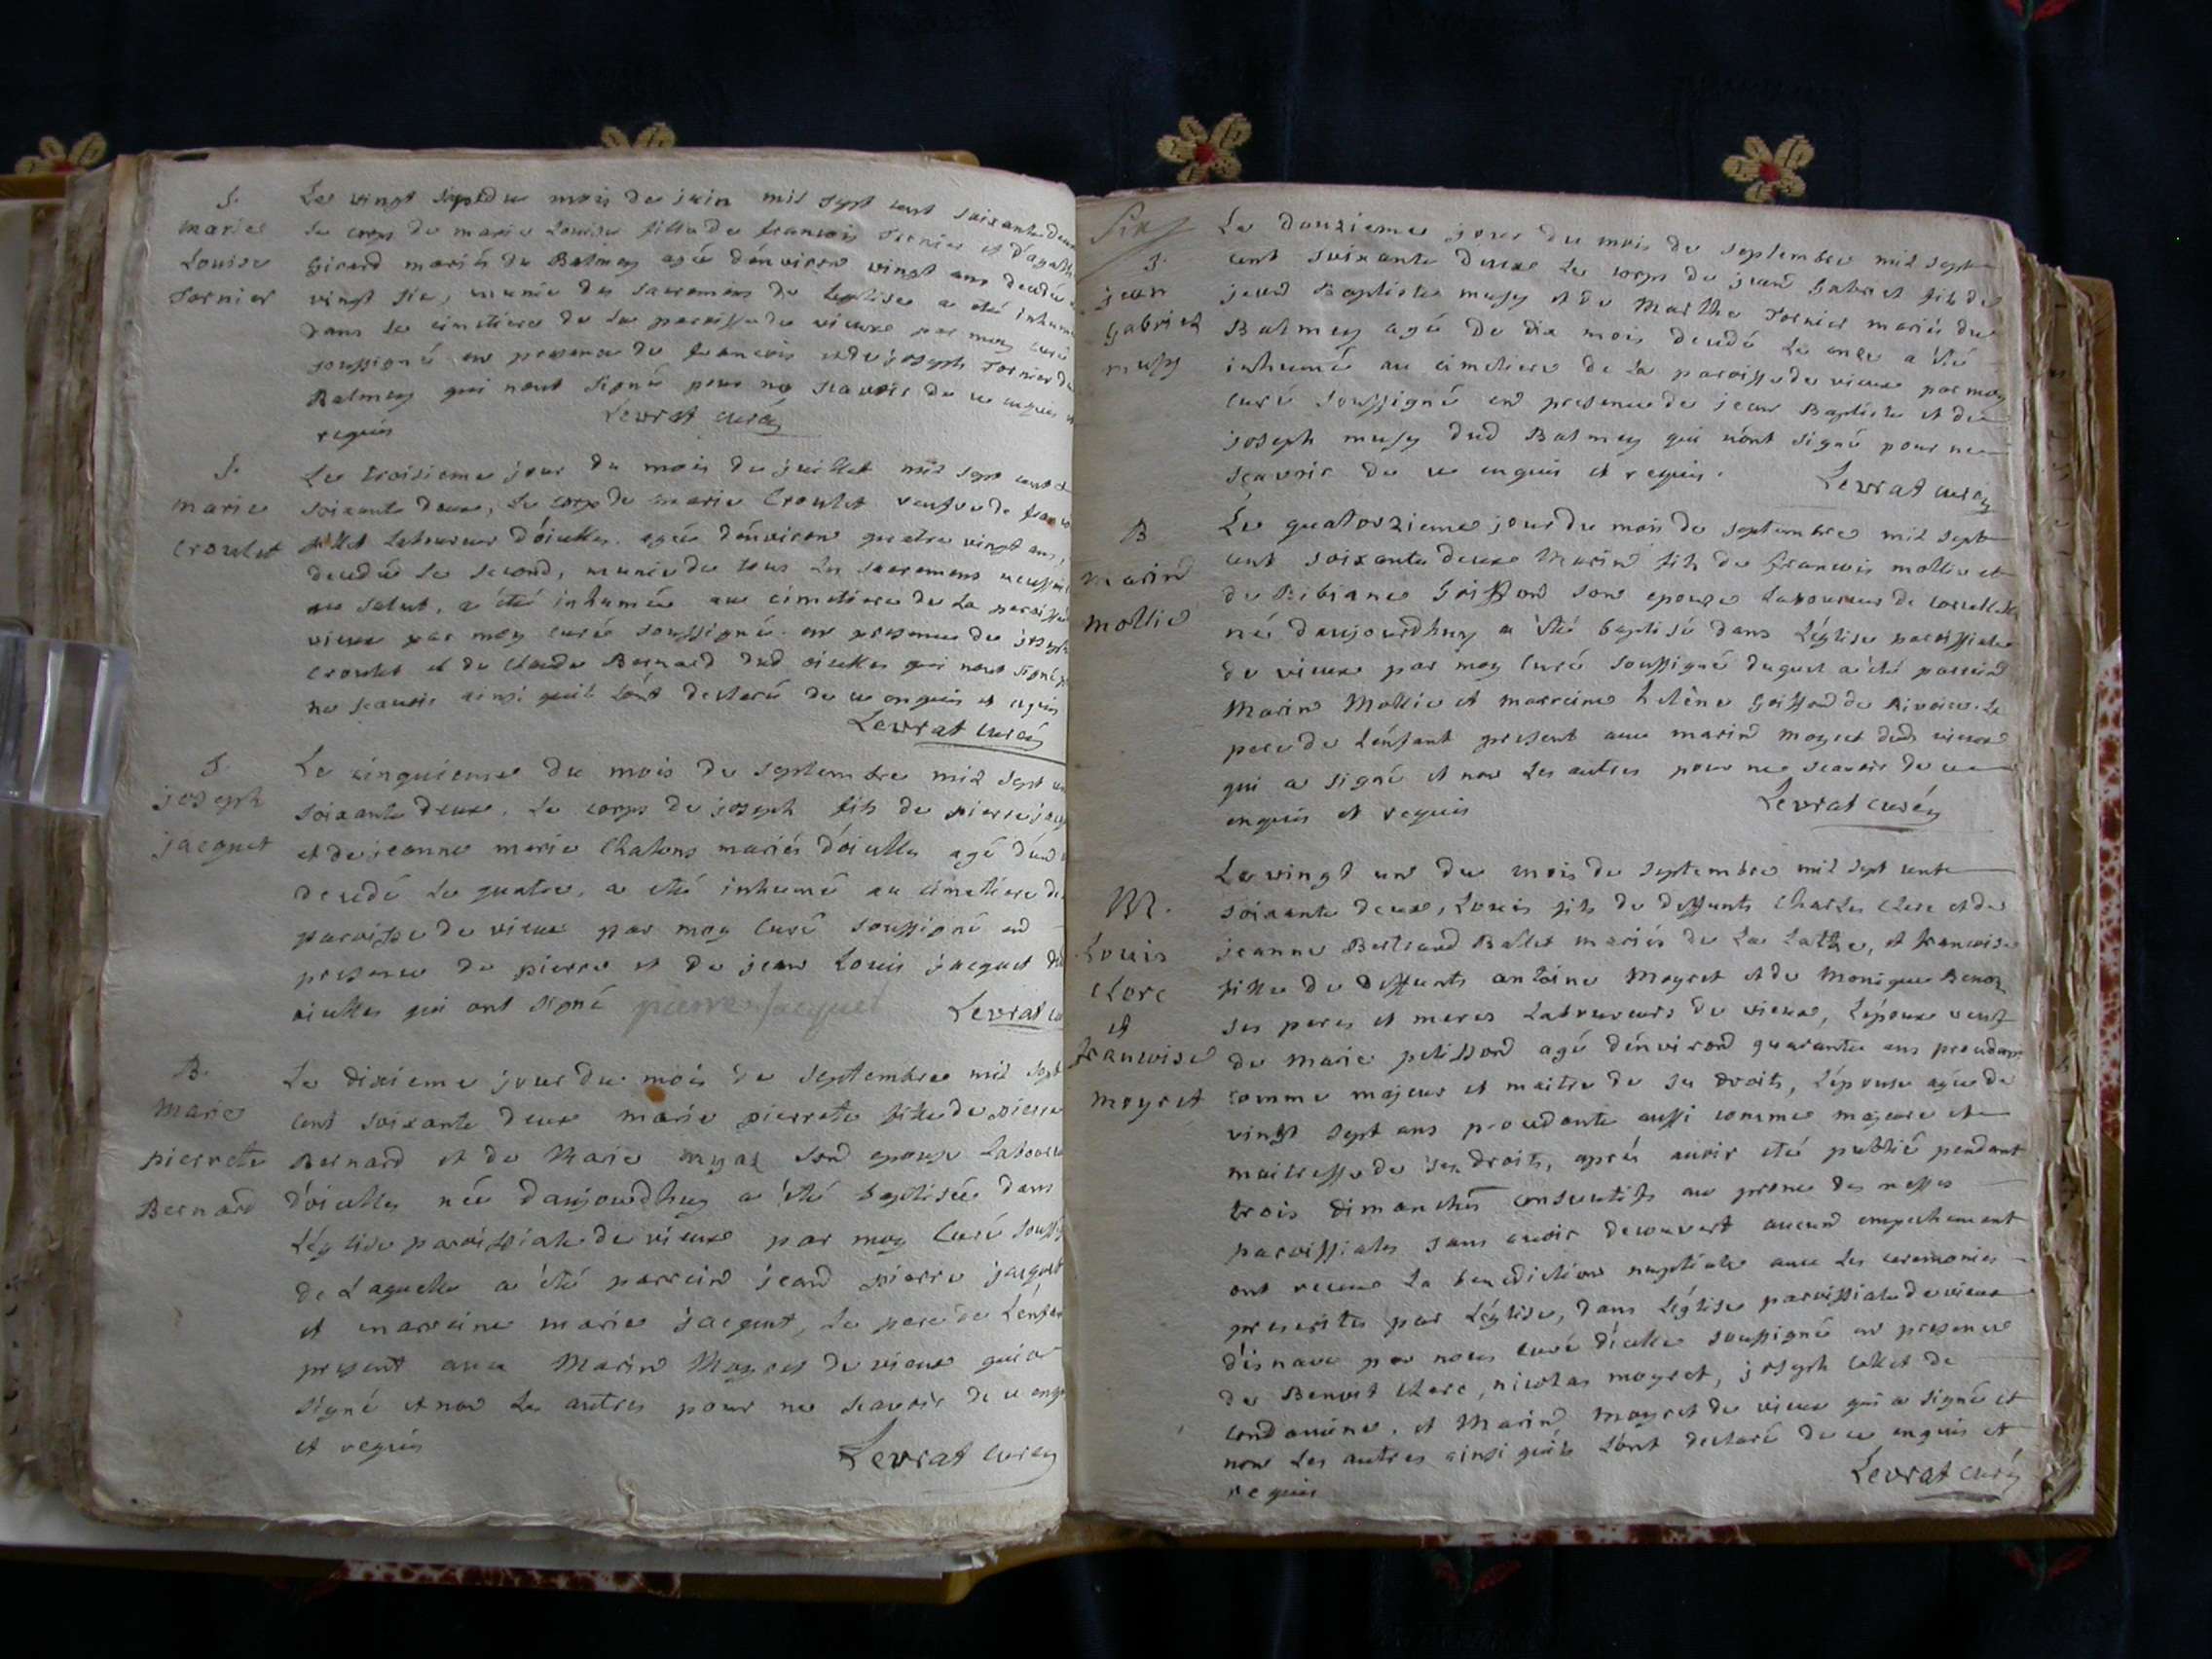 S.
marie
Louise
Tornier
Le vingt sept du mois de juin mil sept cent soixante deux
Le corps de marie Louise fille de francois Tornier et d'agathe
Girard mariés du Balmey agé d'environ vingt ans decedée
vingt six, munie des sacremens de Leglise a eté inhumé
dans Le cimetiere de La paroisse de vieux par moy curé
soussigné en presence de francois et de joseph Tornier du
Balmey qui nont signé pour ne scavoir de ce enquis et
requis
Levrat curé
S.
marie
Croulet
Le troisieme jour du mois de juillet mil sept cent
soixante deux, Le corps de marie Croulet veufve de
Laboureur d'oicelles. agée d'environ quatre vingt ans,
decedée Le second, munie de tous Les sacremens
au salut, a été inhumée au cimetiere de La paroisse
vieux par moy curé soussigné en presence de joseph
Croulet et de Claude Bernard dud oicelles qui nont signé
ne scavoir ainsi quils l'ont declaré de ce enquis et requis
Levrat curé
S.
joseph
jacquet
Le cinquieme du mois de septembre mil sept
soixante deux. Le corps de joseph fils de pierre
et de jeanne marie Chatons mariés d'oicelles agé
decedé Le quatre, a eté inhumé au cimetiere de
paroisse de vieux par moy curé soussigné en
presence de pierre et de jean Louis jacquet
oicelles qui ont signé pierre Jacquet Levrat
B.
marie
pierrete
Bernard
Le dixieme jour du mois de septembre mil sept
cent soixante deux marie pierrete fille de pierre
Bernard et de Marie son epouse Laboureur
d'oicelles née daujourdhuy a été baptisée dans
Léglise paroissiale de vieux par moy Curé
de Laquelle a été parrein jean pierre jacquet
et marreine marie jacquet, Le pere de Lenfant
present avec Marin Moyret de vieux qui a
signé et non Les autres pour ne scavoir de ce
et requis
Levrat curé
Six
S.
jean
Gabriel
mussy
Le douzieme jour du mois de septembre mil sept
cent soixante deux Le corps de jean Gabriel fils de
jean Baptiste mussy et de Marthe Tornier mariés du
Balmey agé de dix mois decedé Le onze a été
inhumé au cimetiere de La paroisse de vieux par moy
curé soussigné en presence de jean Baptiste et de
joseph mussy dud Balmey qui n'ont signé pour ne
scavoir de ce enquis et requis.
Levrat curé
B
Marin
Mollie
Le quatorzieme jour du mois de septembre mil sept
cent soixante deux Marin fils de francois mollie et
de Bibiane Goiffon son epouse Laboureur de
né daujourdhuy a été baptisé dans Léglise paroissiale
de vieux par moy Curé soussigné duquel a été parrein
Marin Mollie et marreine helène Goiffon de Rivoire. Le
pere de Lénfant present avec marin moyret dud vieux
qui a signé et non Les autres pour ne scavoir de ce
enquis et requis
Levrat curé
M.
Louis
Clerc
et
francoise
moyret
Le vingt un du mois de septembre mil sept cent
soixante deux, Louis fils de deffunts Charles Clerc et de
jeanne Bertrand Ballet mariés de La, et francoise
fille de deffunts antoine Moyret et de Monique
ses peres et meres Laboureurs de vieux, L'époux veuf
de Marie pelisson agé d'environ quarante ans procedant
comme majeur et maitre de ses droits, L'épouse agée de
vingt sept ans procedante aussi comme majeure et
maitresse de ses droits, aprés avoir eté publié pendant
trois dimanches consecutifs au prone des messes
paroissiales sans avoir decouvert aucun empechement
ont recu La benediction nuptiale avec Les ceremonies
prescrites par Léglise, dans Léglise paroissiale de vieux
d'isnave par nous curé d'icelle soussigné en presence
de Benoit Clerc, nicolas moyret, joseph Collet de
Condamine, et Marin Moyret de vieux qui a signé et
non Les autres ainsi quils l'ont declaré de ce enquis et
requis
Levrat curé